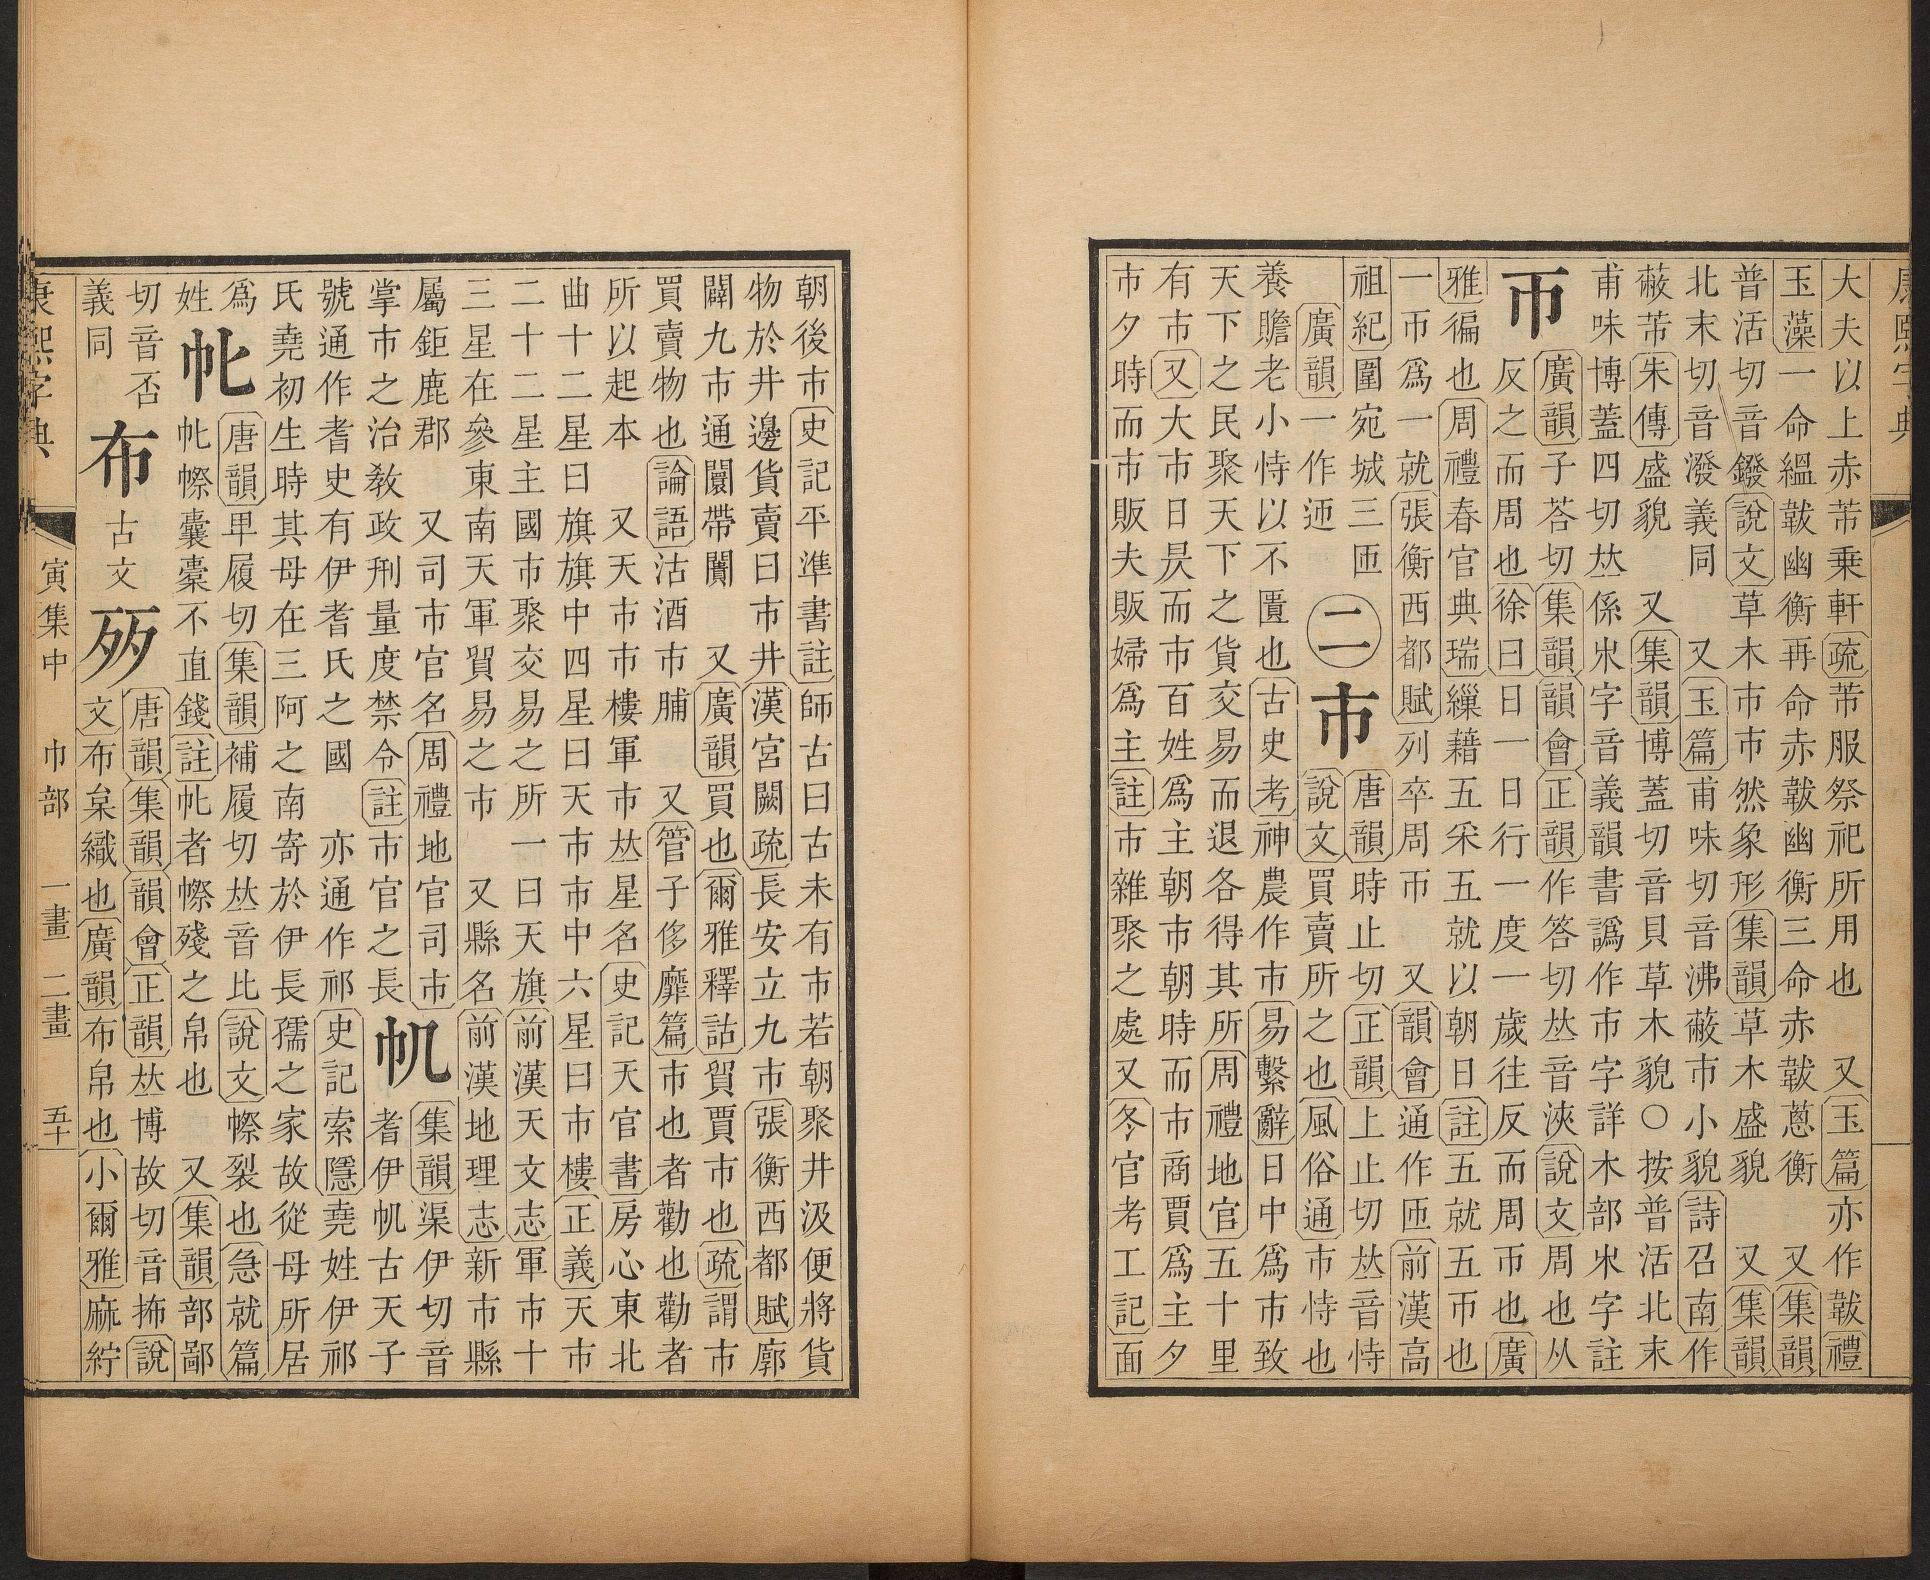 康熙字典
大夫以上赤芾乗軒疏芾服祭祀所用也 又玉篇亦作韍禮
玉藻一命緼韍幽衡再命赤韍幽衡三命赤韍蔥衡 又集韻
普活切音鏺說文草木巿巿然象形集韻草木盛貌 又集韻
北末切音潑義同 又玉篇甫味切音沸蔽巿小貌詩召南作
蔽芾朱傳盛貌 又集韻博蓋切音貝草木貌〇按普活北末
甫味博蓋四切𠀤係𣎵字音義韻書譌作巿字詳木部𣎵字註
帀
廣韻子荅切集韻韻會正韻作答切𠀤音浹說文周也从
反之而周也徐曰日一日行一度一歲往反而周帀也廣
雅徧也周禮春官典瑞繅藉五采五就以朝日註五就五帀也
一帀爲一就張衡西都賦列卒周帀 又韻會通作匝前漢高
祖紀圍宛城三匝
廣韻一作迊
二
市
唐韻時止切正韻上止切𠀤音恃
說文買賣所之也風俗通市恃也
養贍老小恃以不匱也古史考神農作市易繫辭日中爲市致
天下之民聚天下之貨交易而退各得其所周禮地官五十里
有市又大市日昃而市百姓爲主朝市朝時而市商賈爲主夕
市夕時而市販夫販婦爲主註市雜聚之處又冬官考工記面
朝後市史記平準書註師古曰古未有市若朝聚井汲便將貨
物於井邊貨賣曰市井漢宮闕疏長安立九市張衡西都賦廓
闢九市通闤帶闠 又廣韻買也爾雅釋詁賀賈市也疏謂市
買賣物也論語沽酒市脯 又管子侈靡篇市也者勸也勸者
所以起本 又天市市樓軍市𠀤星名史記天官書房心東北
曲十二星曰旗旗中四星曰天市市中六星曰市樓正義天市
二十二星主國市聚交易之所一曰天旗前漢天文志軍市十
三星在參東南天軍貿易之市 又縣名前漢地理志新市縣
屬鉅鹿郡 又司市官名周禮地官司市
掌市之治敎政刑量度禁令註市官之長
𢁒
集韻渠伊切音
耆伊𢁒古天子
號通作耆史有伊耆氏之國 亦通作祁史記索隱堯姓伊祁
氏堯初生時其母在三阿之南寄於伊長孺之家故從母所居
爲
姓
㠲
唐韻𤰞履切集韻補履切𠀤音比說文㡜裂也急就篇
㠲㡜囊橐不直錢註㠲者㡜殘之帛也 又集韻部鄙
切音否
義同
布
古文
唐韻集韻韻會正韻𠀤博故切音抪說
文布枲織也廣韻布帛也小爾雅麻紵
康熙字典 寅集中 巾部 一畫 二畫 五十